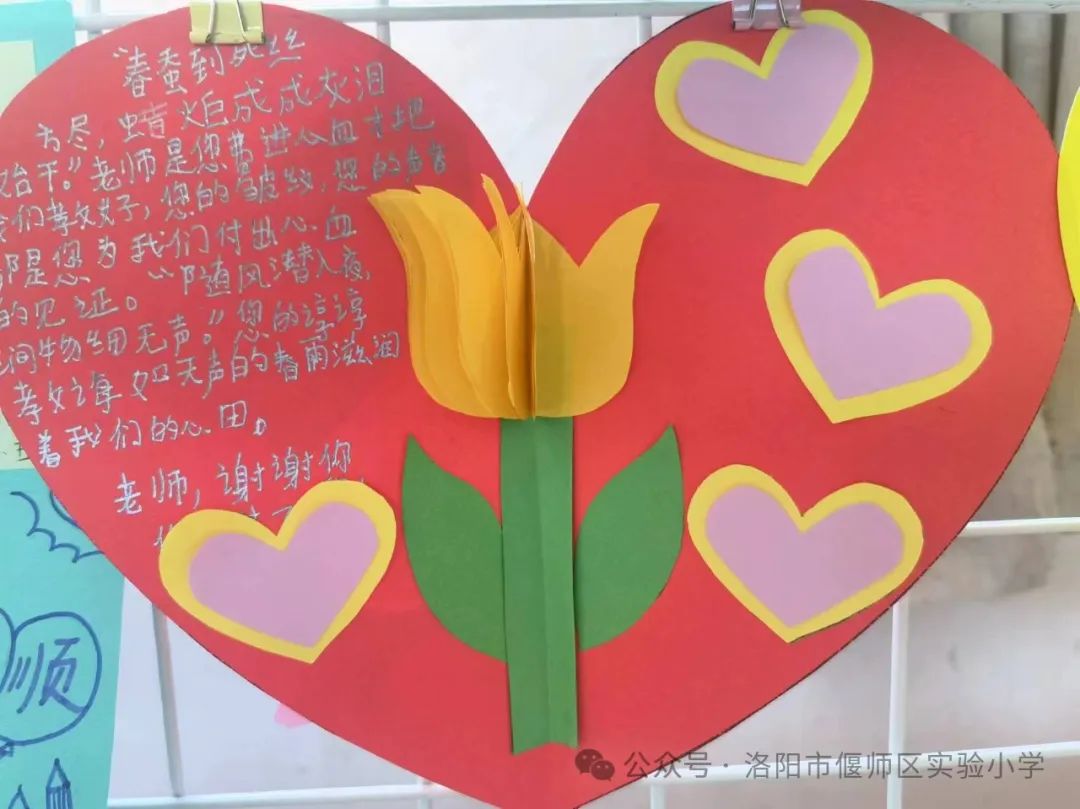 “春蚕到死丝
方尽，蜡炬成成灰泪
始干。”老师是您费进心血才把
我们教好，您的皱纹，您的声音
都是您为我们付出心血
的见证。“随风潜入夜，
润物细无声。”您的谆谆
教诲如无声的春雨滋润
着我们的心田。
老师，谢谢您
顺
公众号·洛阳市偃师区实验小学